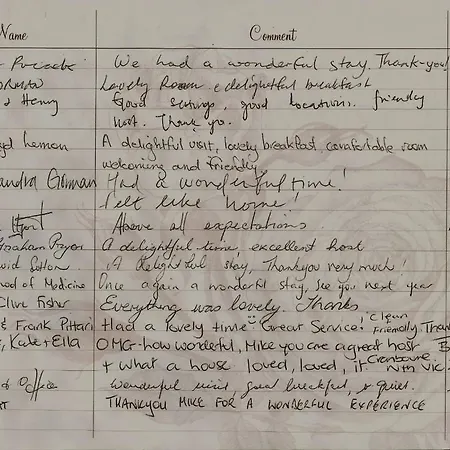 Name Comment
We had a wonderful stay. Thank-you!
Lovely Room & delightful breakfast
& Henry Good settings, good locations. friendly
host. Thank you.
Leman A delightful visit, lovely breakfast comfortable room
welcoming and friendly
andra Gorman Had a wonderful time!
Felt like 'home'!
Above all expectations
Graham Pryor A delightful time, excellent host
vid Sutton A delightful stay, Thankyou very much!
ood of Medicine Once again a wonderful stay, see you next year
Clive Fisher Everything was lovely. Thanks
& Frank Pittari Had a lovely time. Great Service! Clean, Friendly, Thank
, Kate + Ella OMG - how wonderful, Mike you are a great host
+ what a house loved, loved, it. Cranbourne, Vic
Wonderful visit, great breakfast, & quiet.
THANKYOU MIKE FOR A WONDERFUL EXPERIENCE